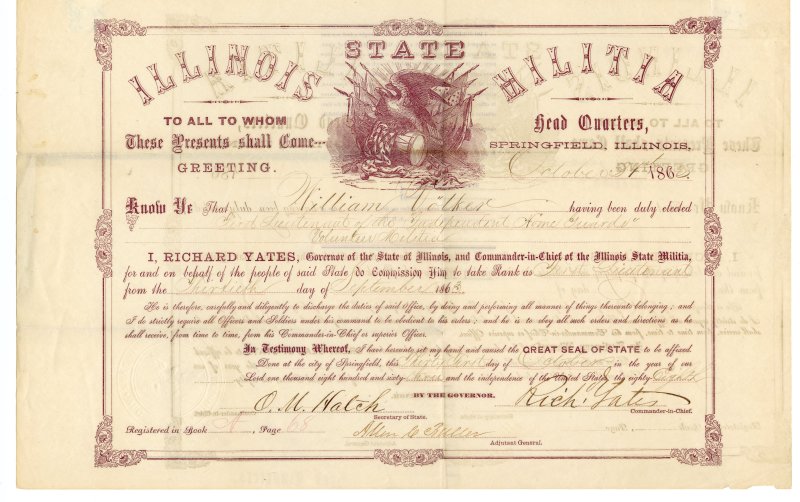 ILLINOIS STATE MILITIA
TO ALL TO WHOM
These Presents shall Come---
GREETING.
Head Quarters,
SPRINGFIELD, ILLINOIS,
October 31st 1863.
Know Ye That William having been duly elected
First Lieutenant of the "Independent Home Guards"
Volunteer Militia
I, RICHARD YATES, Governor of the State of Illinois, and Commander-in-Chief of the Illinois State Militia,
for and on behalf of the people of said State do Commission Him to take Rank as First Lieutenant
from the Thirtieth day of September 1863.
He is, therefore, carefully and diligently to discharge the duties of said Office, by doing and performing all manner of things thereunto belonging; and
I do strictly require all Officers and Soldiers under his command to be obedient to his orders; and he is to obey all such orders and directions as he
shall receive, from time to time, from his Commander-in-Chief or superior Officer.
In Testimony Whereof, I have hereunto set my hand and caused the GREAT SEAL OF STATE to be affixed.
Done at the city of Springfield, this Thirty first day of October in the year of our
Lord one thousand eight hundred and sixty three and the independence of the United States, the eighty Eighth
BY THE GOVERNOR.
O. M. Hatch
Secretary of State.
Rich. Yates
Commander-in-Chief.
Registered in Book A, Page 68
Allen C Fuller
Adjutant General.